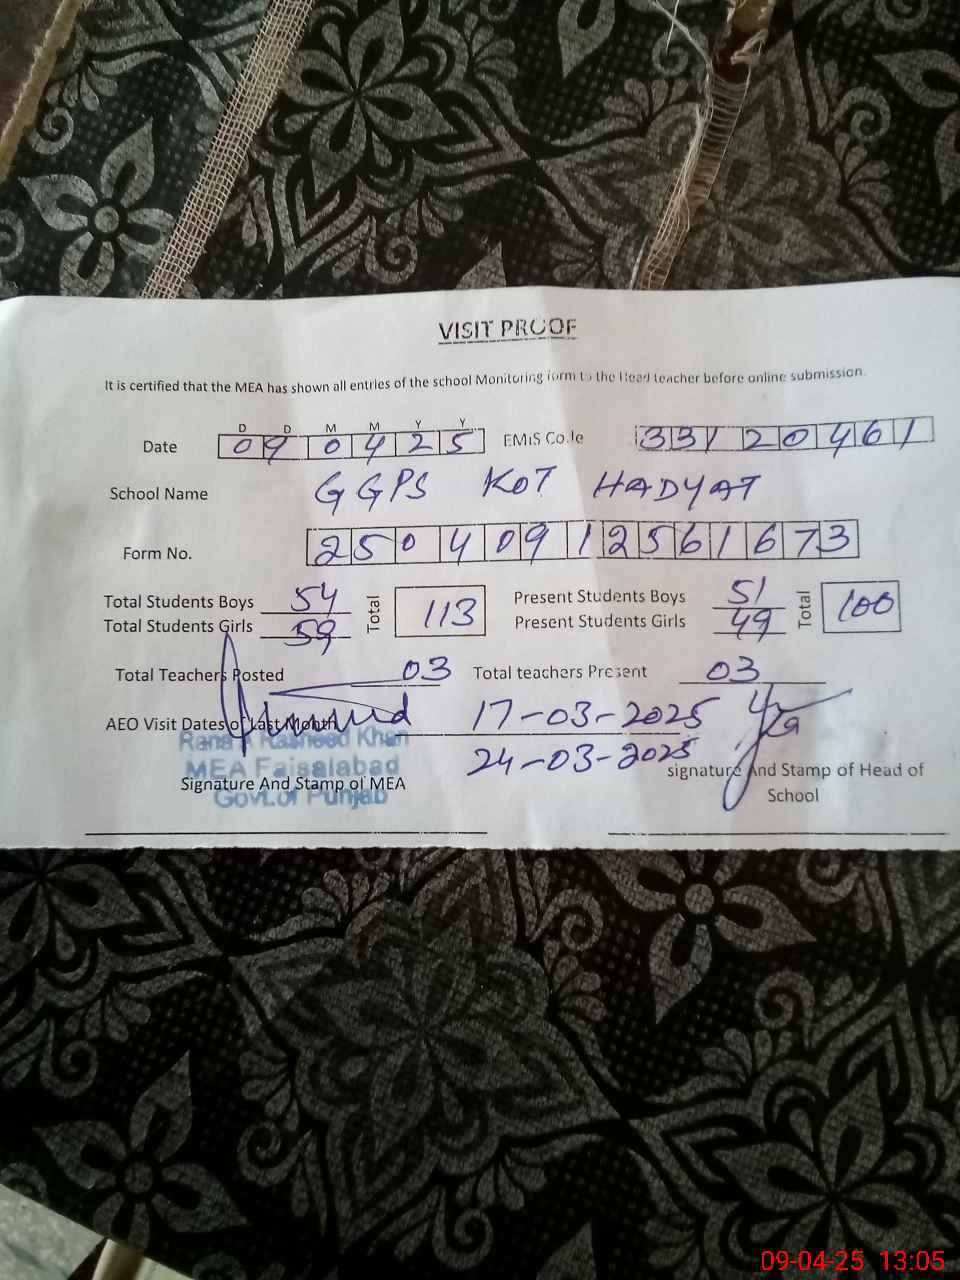 VISIT PROOF
It is certified that the MEA has shown all entries of the school Monitoring form to the Head teacher before online submission.
D D M M Y Y
Date 09 04 25 EMIS Code 33120461
School Name GGPS KOT HADYAT
Form No. 25040912561673
Total Students Boys 54 Total 113 Present Students Boys 51 Total 100
Total Students Girls 59 Present Students Girls 49
Total Teachers Posted 03 Total teachers Present 03
AEO Visit Dates of Last Month 17-03-2025
24-03-2025
Rana Rasheed Khan
MEA Faisalabad
Govt.of Punjab
Signature And Stamp of MEA
signature And Stamp of Head of School
09-04-25 13:05